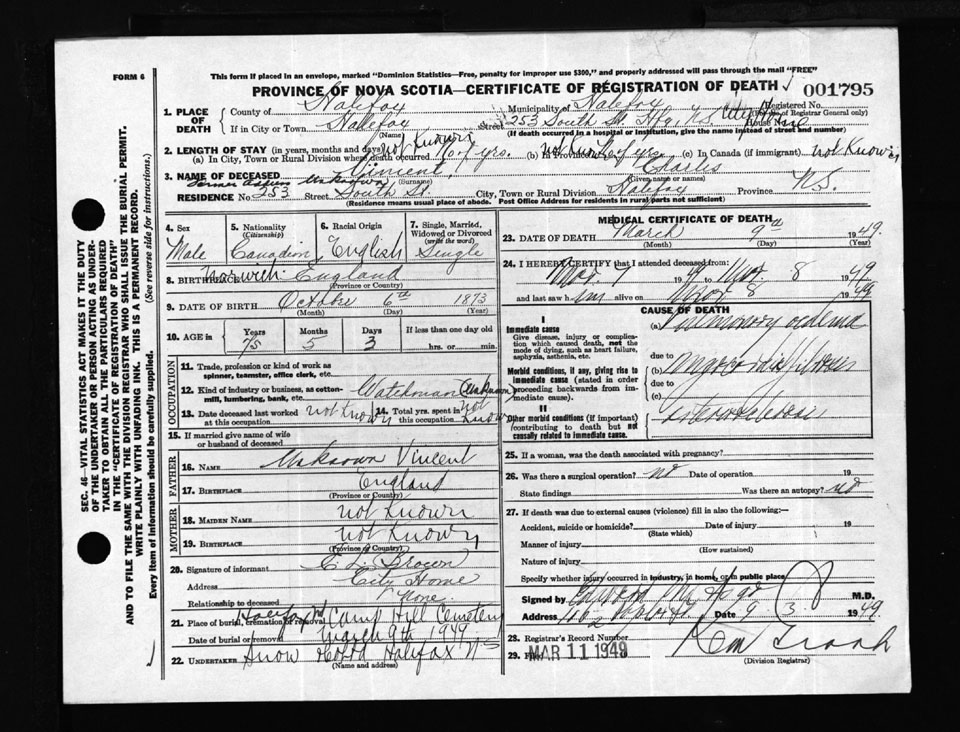 This form if placed in an envelope, marked "Dominion Statistics—Free, penalty for improper use $300," and properly addressed will pass through the mail "FREE"
FORM 6
PROVINCE OF NOVA SCOTIA—CERTIFICATE OF REGISTRATION OF DEATH
001795
SEC. 46—VITAL STATISTICS ACT MAKES IT THE DUTY
OF THE UNDERTAKER OR PERSON ACTING AS UNDER-
TAKER TO OBTAIN ALL THE PARTICULARS REQUIRED
IN THE "CERTIFICATE OF REGISTRATION OF DEATH"
AND TO FILE THE SAME WITH THE DIVISION REGISTRAR WHO SHALL ISSUE THE BURIAL PERMIT.
WRITE PLAINLY WITH UNFADING INK. THIS IS A PERMANENT RECORD.
Every item of information should be carefully supplied. (See reverse side for instructions.)
1. PLACE OF DEATH
County of Halifax Municipality of Halifax Registered No.
(For use of Registrar General only)
If in City or Town Halifax Street 253 South St. Hfx, N.S. House No.
(Name) (If death occurred in a hospital or institution, give the name instead of street and number)
2. LENGTH OF STAY (in years, months and days)
(a) In City, Town or Rural Division where death occurred not Known (b) In Province not Known (c) In Canada (if immigrant) not Known
3. NAME OF DECEASED Vincent Charles
(Surname) (Given name or names)
Former Address Unknown
RESIDENCE No. 253 Street South St. City, Town or Rural Division Halifax Province N.S.
(Residence means usual place of abode. Post Office Address for residents in rural parts not sufficient)
4. Sex Male
5. Nationality (Citizenship) Canadian
6. Racial Origin English
7. Single, Married, Widowed or Divorced (write the word) Single
8. BIRTHPLACE Norwich England
(Province or Country)
9. DATE OF BIRTH October 6th 1873
(Month) (Day) (Year)
10. AGE in Years 75 Months 5 Days 3 If less than one day old hrs. or min.
OCCUPATION
11. Trade, profession or kind of work as spinner, teamster, office clerk, etc.
12. Kind of industry or business, as cotton-mill, lumbering, bank, etc. Watchman (unknown)
13. Date deceased last worked at this occupation not Known
14. Total yrs. spent in this occupation not Known
15. If married give name of wife or husband of deceased
FATHER
16. Name Unknown Vincent
17. Birthplace England
(Province or Country)
MOTHER
18. Maiden Name not Known
19. Birthplace not Known
(Province or Country)
20. Signature of informant E. L. Brown
Address City Home
Relationship to deceased None.
21. Place of burial, cremation or removal Halifax Camp Hill Cemetery
Date of burial or removal March 9th 1949
22. UNDERTAKER Snow Halifax N.S.
(Name and address)
MEDICAL CERTIFICATE OF DEATH
23. DATE OF DEATH March 9th 1949.
(Month) (Day) (Year)
24. I HEREBY CERTIFY that I attended deceased from:
Mar. 7 1949 to Mar. 8 1949
and last saw him alive on Mar 8 1949
CAUSE OF DEATH
I
Immediate cause
Give disease, injury or complication which caused death, not the mode of dying, such as heart failure, asphyxia, asthenia, etc.
(a) Pulmonary oedema
due to
Morbid conditions, if any, giving rise to immediate cause (stated in order proceeding backwards from immediate cause).
(b)
due to
(c)
II
Other morbid conditions (if important) contributing to death but not causally related to immediate cause.
25. If a woman, was the death associated with pregnancy?
26. Was there a surgical operation? no Date of operation 19
State findings Was there an autopsy? no
27. If death was due to external causes (violence) fill in also the following:—
Accident, suicide or homicide? Date of injury 19
(State which)
Manner of injury
(How sustained)
Nature of injury
Specify whether injury occurred in industry, in home, or in public place
Signed by M.D.
Address Date 9. 3. 1949
28. Registrar's Record Number
29. Filed MAR 11 1949
(Division Registrar)